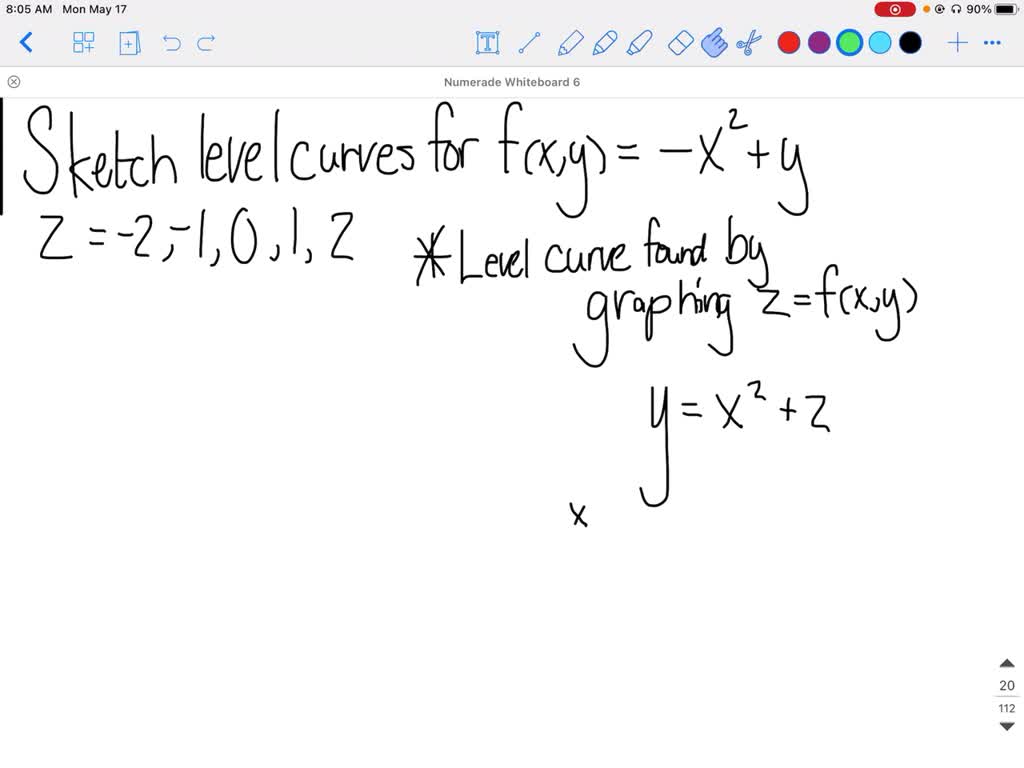 8:05 AM Mon May 17 90%
Numerade Whiteboard 6
Sketch level curves for f(x,y) = -x² + y
z = -2, -1, 0, 1, 2
* Level curve found by
graphing z = f(x,y)
y = x² + z
x
20
112